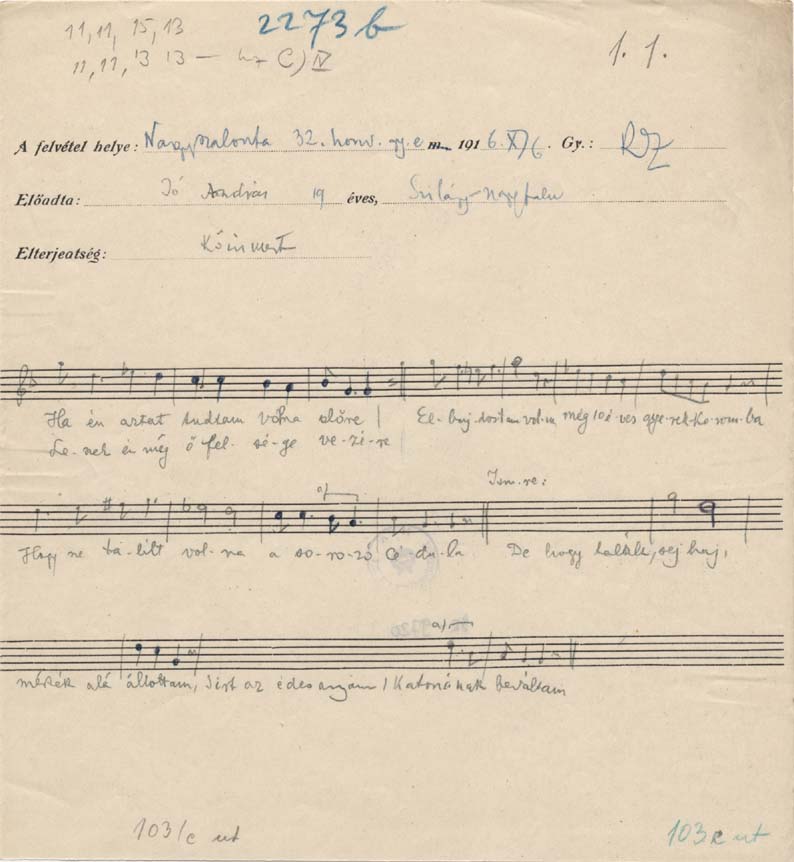 11, 11, 15, 13 2273 b
11, 11, 13 13 — C) IV 1. 1.
A felvétel helye: Nagyszalonta 32. honv. gy. e m. 1916. XI/6. Gy.: RZ
Előadta: Jó András 19 éves, Szilágy-nagyfalu
Elterjeatség: Közismert
Ha én aztat tudtam vólna előre | El-buj-dostam vol-na még 10 é-ves gye-rek-ko-rom-ba
Le-nek én még ő fel-sé-ge ve-zé-re
a) Ism. re:
Hogy ne ta-lált vol-na a so-ro-zó cé-du-la De hogy talált, sej haj,
a)
mérék alá állottam, Sirt az édes anyám | Katonának beváltam
103/c ut 103c ut